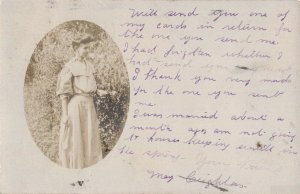 Will send you one of
my cards in return for
the one you send me.
I had forgotten whether I
had send you
I thank you very much
for the one you sent
me.
I was married about a
month ago am not going
to house keeping until in
the spring. Your friend
May